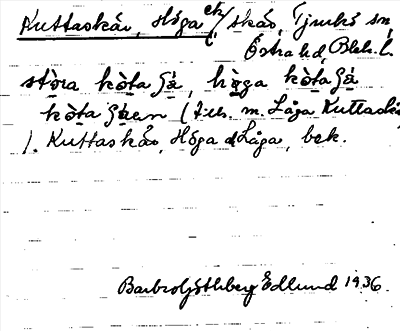 Kuttaskär, Höga ek./skär, Tjurkö sn,
Östra hd, Blek. l.
stòra kòta ʃä, hòga kòta ʃä
kòta ʃären (tills. m. Låga Kuttaskä
1. Kuttaskär, Höga o Låga, bek.
Barbro Göthberg Edlund 1936.